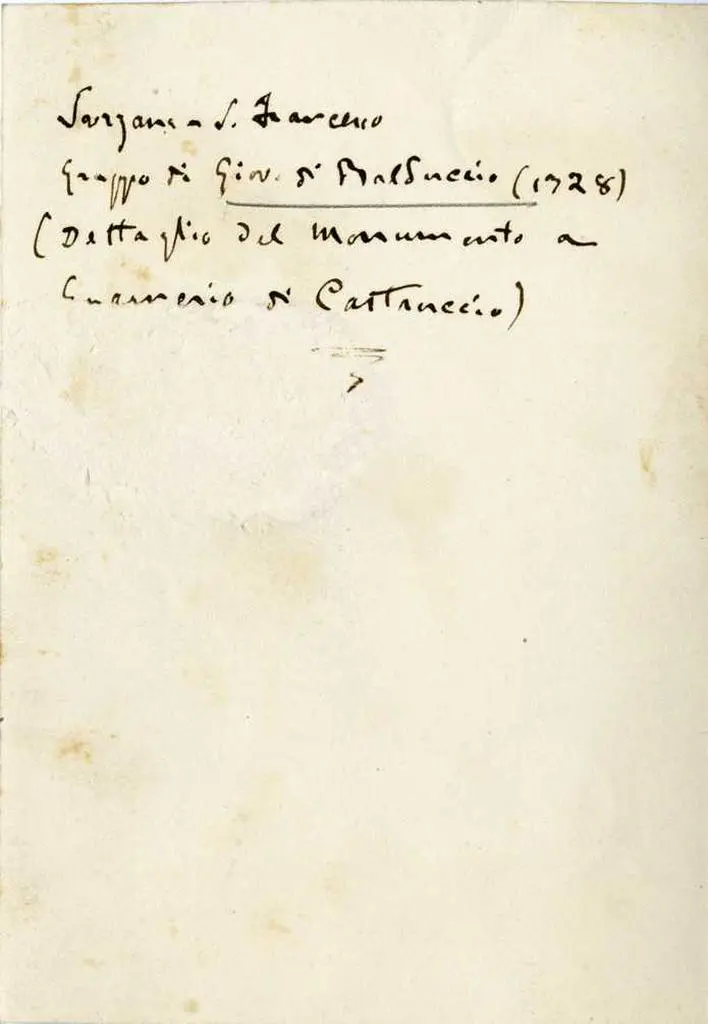 Sarzana - S. Francesco
Gruppo di Giov. di Balduccio (1328)
(Dettaglio del Monumento a
Guarnerio di Castruccio)